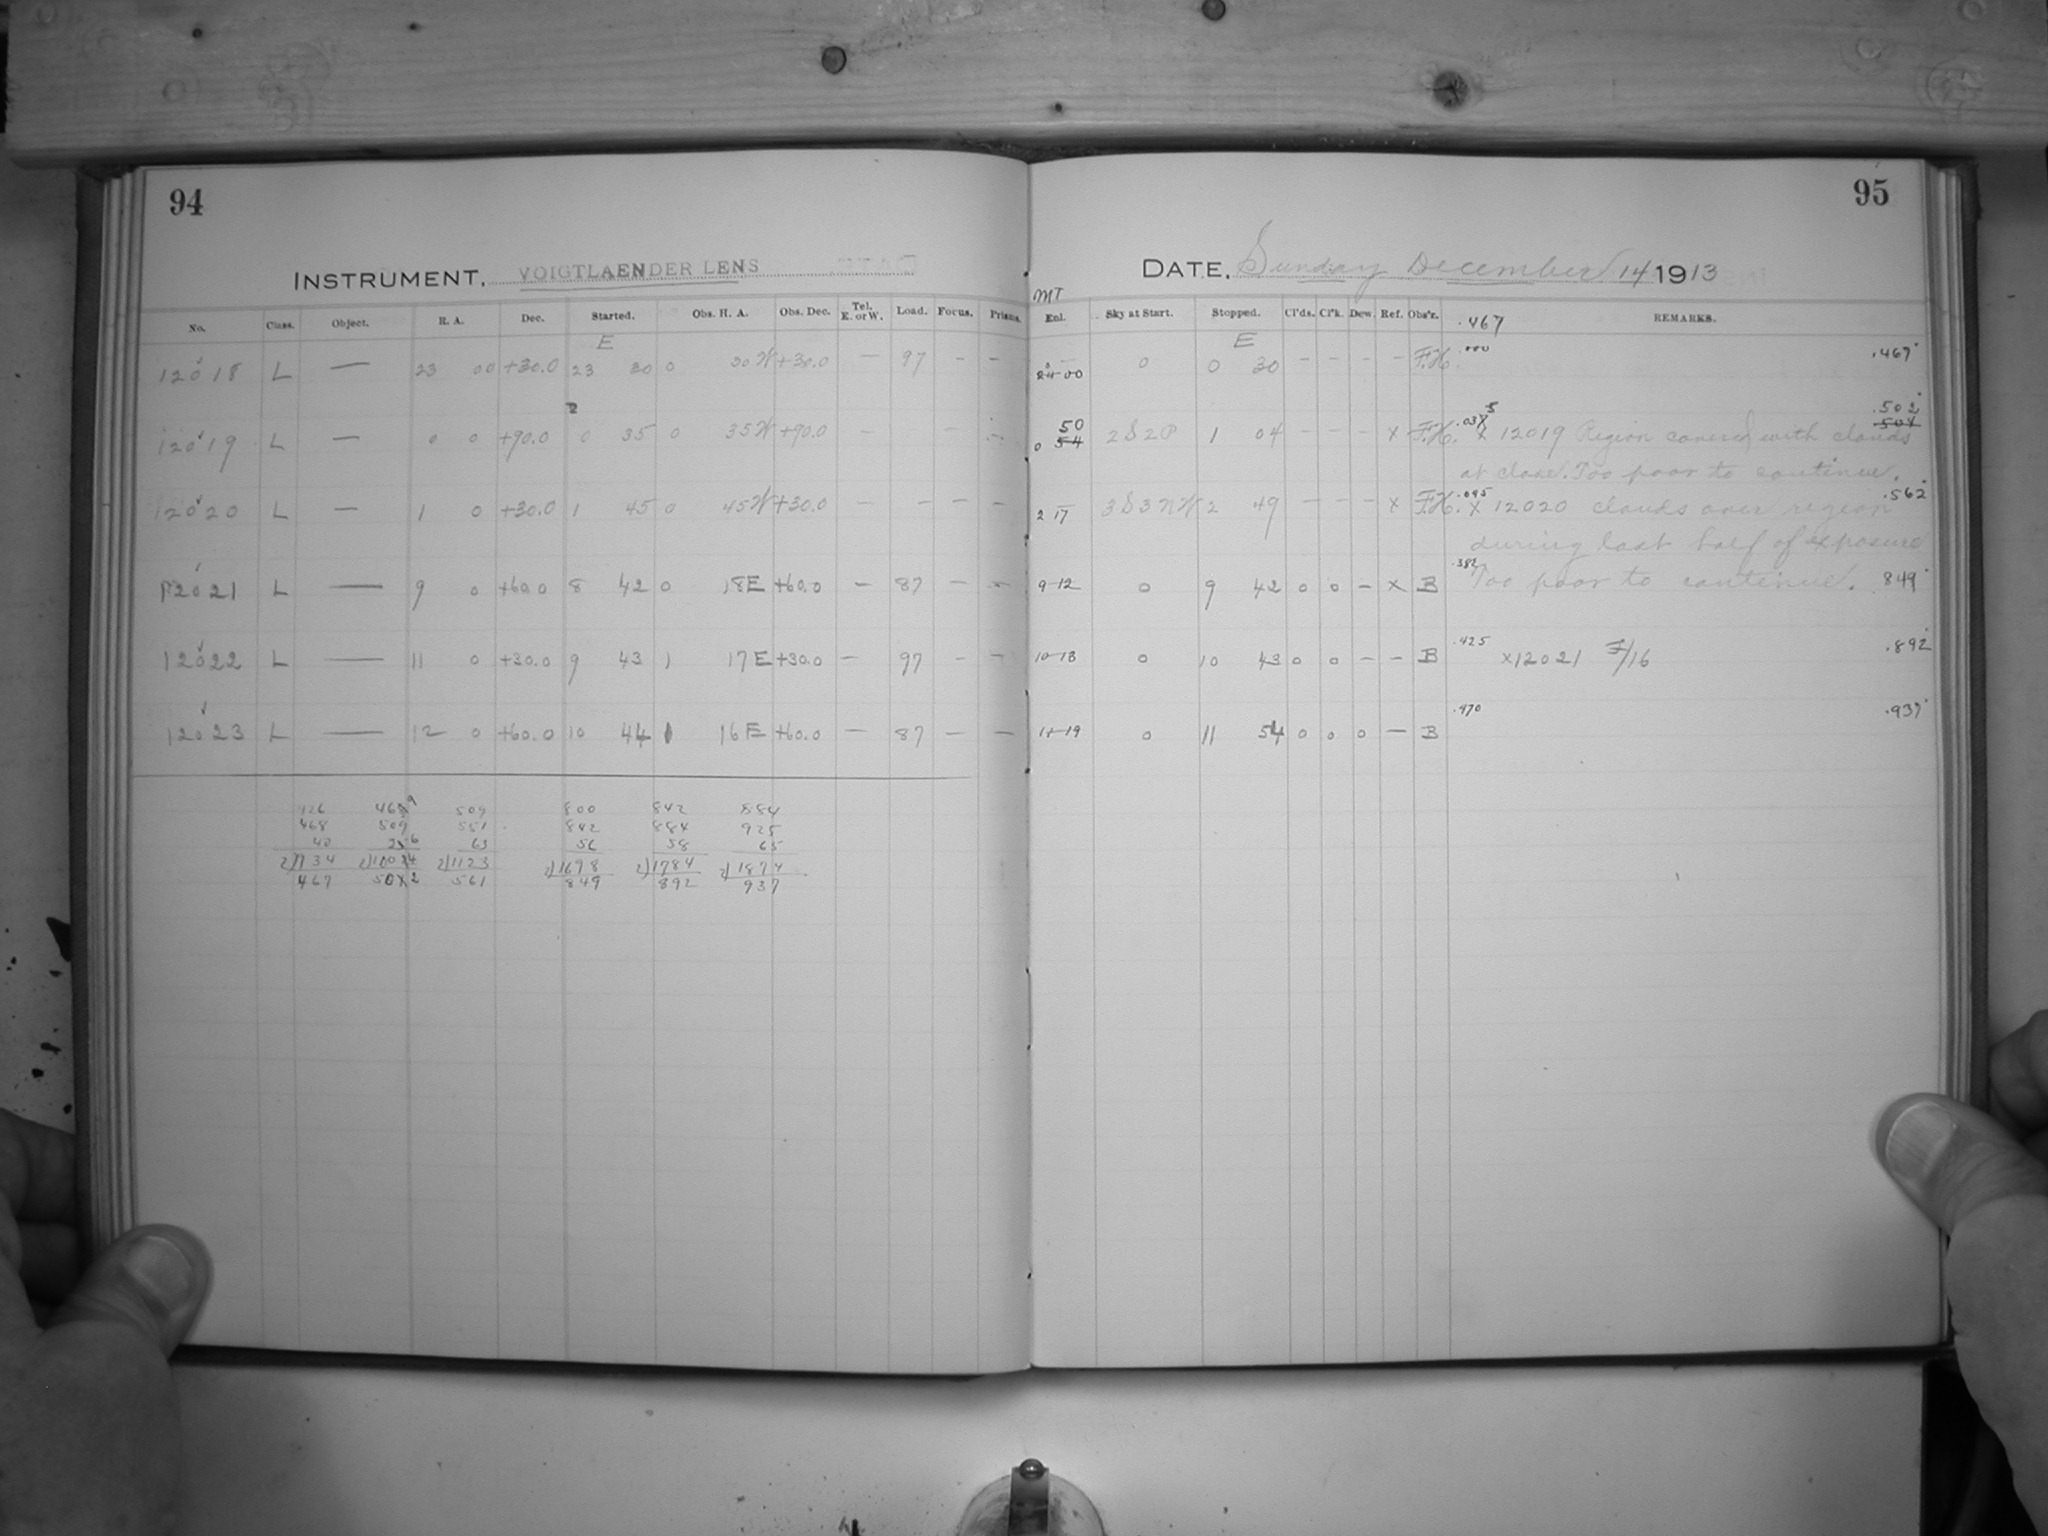 94
INSTRUMENT, VOIGTLAENDER LENS
No. Class. Object. R. A. Dec. Started. Obs. H. A. Obs. Dec. Tel. E. or W. Load. Focus. Prisms.
E
12018 L — 23 00 +30.0 23 30 0 30W +30.0 — 97 – –
12019 L — 0 0 +90.0 0 35 0 35W +90.0 – – –
12020 L — 1 0 +30.0 1 45 0 45W +30.0 – – – –
12021 L — 9 0 +60.0 8 42 0 18E +60.0 – 87 – –
12022 L — 11 0 +30.0 9 43 1 17E +30.0 – 97 – –
12023 L — 12 0 +60.0 10 44 1 16E +60.0 – 87 – –
426 469 509 800 842 884
468 509 551 842 884 925
40 26 63 56 58 65
2)934 2)1004 2)1123 2)1698 2)1784 2)1874
467 502 561 849 892 937
95
DATE, Sunday December 14 1913
MT
Enl. Sky at Start. Stopped. Cl'ds. Cl'k. Dew. Ref. Obs'r. REMARKS.
.467
E
24-00 0 0 30 – – – – F.H. .000 .467
.502
0 50 54 2S2P 1 04 – – – x F.H. .035 x 12019 Region covered with clouds .504
at close. Too poor to continue.
2 17 3S3NW 2 49 – – – x F.H. .095 x 12020 clouds over region .562
during last half of exposure
9-12 0 9 42 0 0 – x B .382 Too poor to continue. .849
10-13 0 10 43 0 0 – – B .425 x12021 F/16 .892
11-19 0 11 54 0 0 0 – B .470 .937